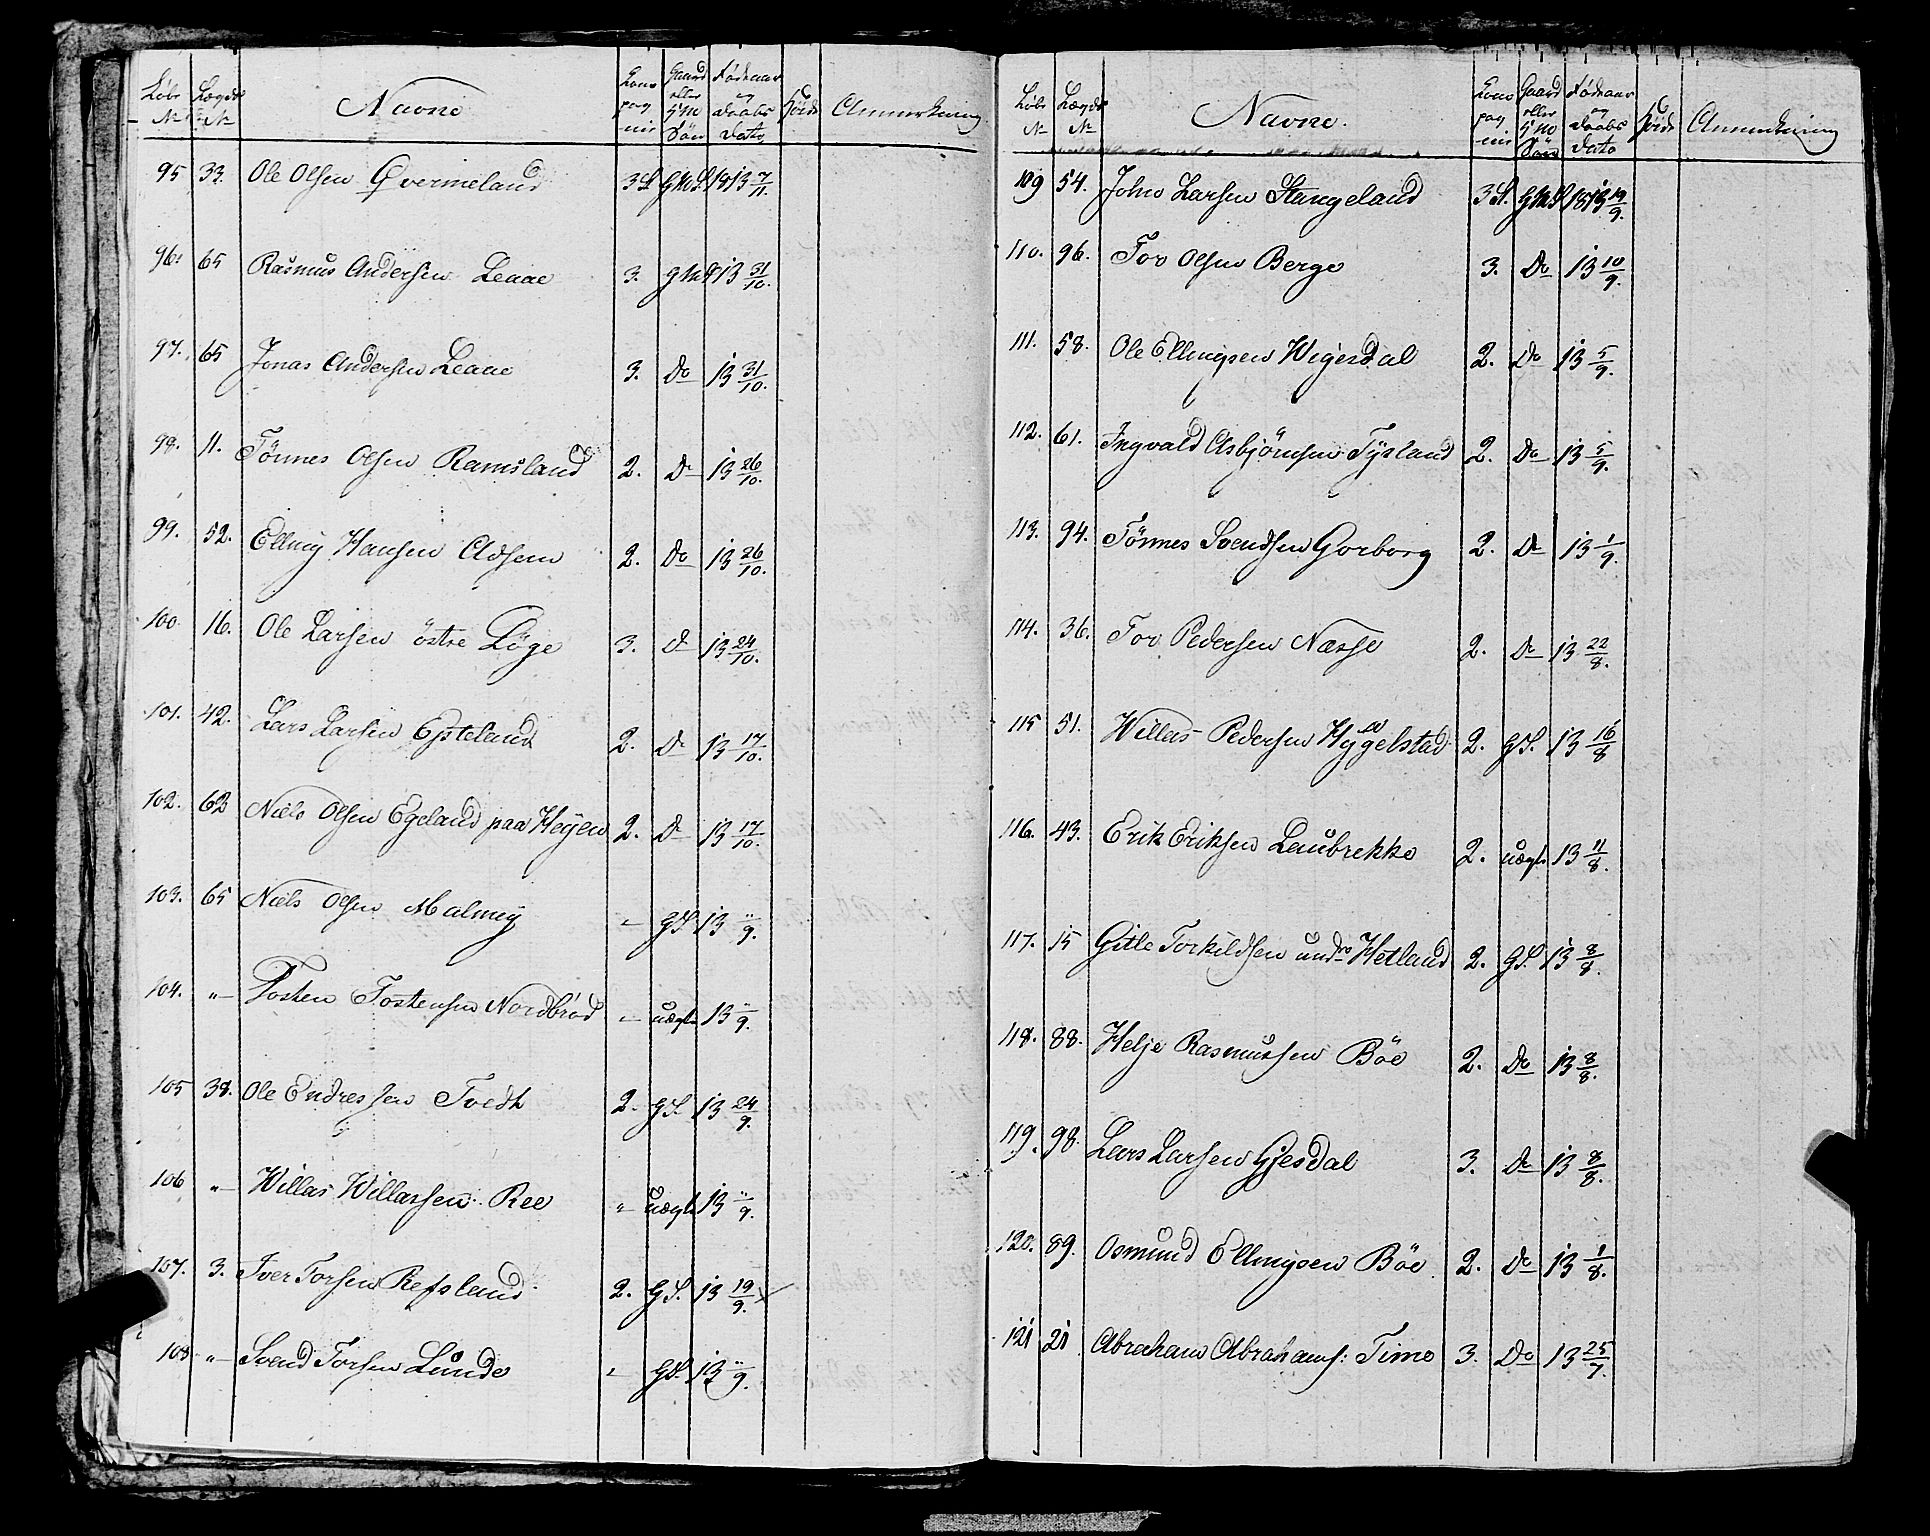 Løbe Lægds Navne Com Gaard Fødeaar Høide Anmerkning
№ № pag eller og
nie HM Daabs
Søn Dato
95 33. Ole Olsen Qvermeland 3 S GMS 1813 7/11.
96. 65 Rasmus Andersen Leaae 3. GMS 13 31/10.
97. 65 Jonas Andersen Leaae 3. Do 13 31/10.
98. 11. Tønnes Olsen Ramsland 2. Do 13 26/10.
99. 52. Elling Hansen Aasen 2. Do 13 26/10.
100. 16. Ole Larsen östre Löge 3. Do 13 24/10.
101. 42. Lars Larsen Epteland 2. Do 13 17/10.
102. 62 Niels Olsen Egeland paa Heÿen 2. Do 13 17/10.
103. 65 Niels Olsen Malmeÿ " GS 13 "/9.
104. " Tosten Tostensen Nordbröd " uægte 13 "/9.
105 38. Ole Endressen Tvedt 2. GS. 13 24/9.
106 " Willas Willassen Ree " uægte 13 "/9.
107. 3. Iver Torsen Refsland 2. GS. 13 19/9.
108 " Svend Torsen Lunde " GS. 13 "/9.
Løbe Lægds Navne. Com Gaard Fødeaar Høide Anmerkning
№ № pag eller og
nie HM Daabs
Søn Dato
109 54. John Larsen Stangeland 3 S. GMS 1813 19/9.
110. 96. Tor Olsen Berge 3. Do 13 10/9.
111. 58. Ole Ellingsen Wigesdal 2. Do 13 5/9.
112. 61. Ingvald Asbjörnsen Tÿsland 2. Do 13 5/9.
113. 94. Tönnes Svendsen Gorborg 2. Do 13 1/9.
114. 36. Tor Pedersen Næsse 2. Do 13 22/8.
115 51. Willas Pedersen Hyggelstad 2. GS. 13 16/8
116. 43. Erik Eriksen Laubrekke 2. uægte 13 11/8.
117. 15 Gitle Torkildsen undre Hetland 2. GS. 13 8/8.
118. 88. Helje Rasmussen Böe 2. Do 13 8/8.
119. 98. Lars Larsen Gjesdal 3. Do 13 8/8.
120. 89. Osmund Ellingsen Böe 2. Do 13 1/8.
121 21 Abraham Abrahams: Time 3. Do 13 25/7.